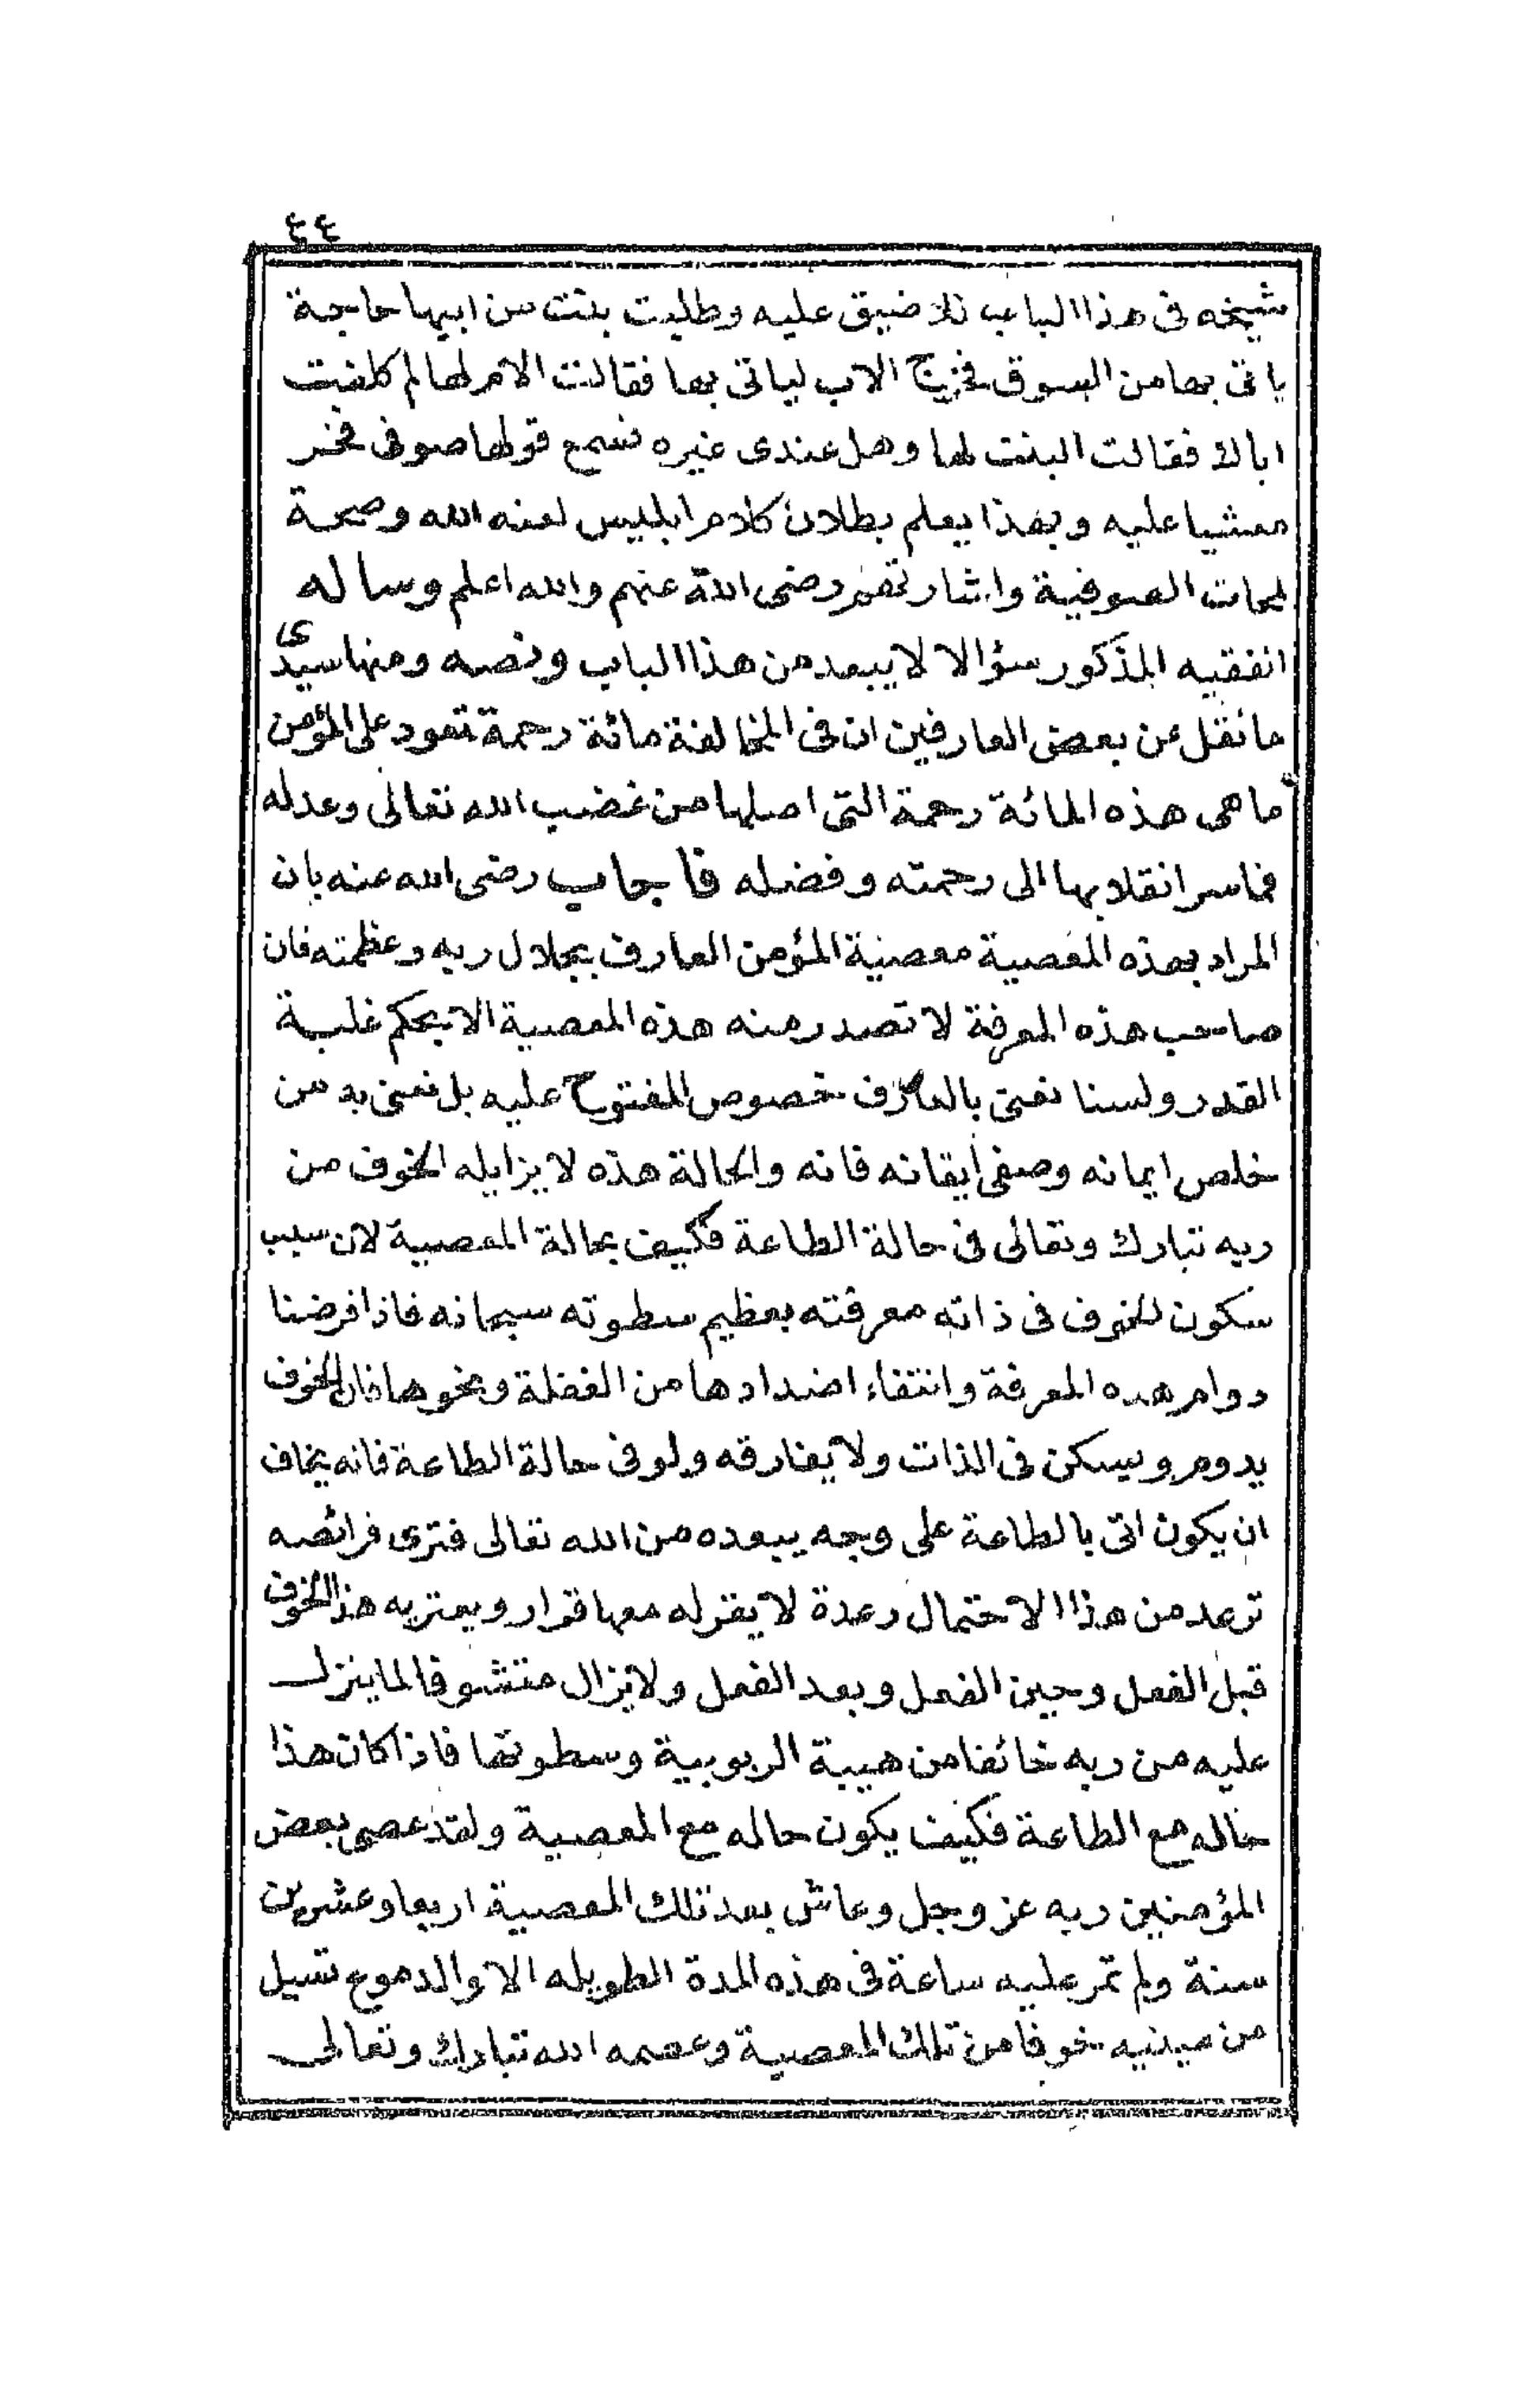 ٤٤
شيخه فى هذا الباب فلا ضيق عليه وطلبت بنت من ابيها حاجة
ياتى بها من السوق فخرج الاب لياتى بها فقالت الام لها لم كلفت
اباك فقالت البنت لها وهل عندى غيره فسمع قولها صوفى فخر
مغشيا عليه وبهذا يعلم بطلان كلام ابليس لعنه الله وصحة
لمحات الصوفية واشارتهم رضى الله عنهم والله اعلم وساله
الفقيه المذكور سؤالا لا يبعد من هذا الباب ونصه ومنها سيدى
ما نقل عن بعض العارفين ان فى المخالفة مائة رحمة تعود على المؤمن
ما هى هذه المائة رحمة التى اصلها من غضب الله تعالى وعدله
فما سر انقلابها الى رحمته وفضله فاجاب رضى الله عنه بان
المراد بهذه المعصية معصية المؤمن العارف بجلال ربه وعظمته فان
صاحب هذه المعرفة لا تصدر منه هذه المعصية الا بحكم غلبة
القدر ولسنا نعنى بالعارف خصوص المفتوح عليه بل نعنى به من
خلص ايمانه وصفى ايقانه فانه والحالة هذه لا يزايله الخوف من
ربه تبارك وتعالى فى حالة الطاعة فكيف بحالة المعصية لان سبب
سكون الخوف فى ذاته معرفته بعظيم سطوته سبحانه فاذا فرضنا
دوام هذه المعرفة وانتفاء اضدادها من الغفلة ونحوها فان الخوف
يدوم ويسكن فى الذات ولا يفارقه ولو فى حالة الطاعة فانه يخاف
ان يكون اتى بالطاعة على وجه يبعده من الله تعالى فترى فرائصه
ترعد من هذا الاحتمال رعدة لا يقر له معها قرار ويعتريه هذا الخوف
قبل الفعل وحين الفعل وبعد الفعل ولا يزال متشوفا لما ينزل
عليه من ربه خائفا من هيبة الربوبية وسطوتها فاذا كان هذا
حاله مع الطاعة فكيف يكون حاله مع المعصية ولقد عصى بعض
المؤمنين ربه عز وجل وعاش بعد تلك المعصية اربعا وعشرين
سنة ولم تمر عليه ساعة فى هذه المدة الطويله الا والدموع تسيل
من عينيه خوفا من تلك المعصية وعصمه الله تبارك وتعالى